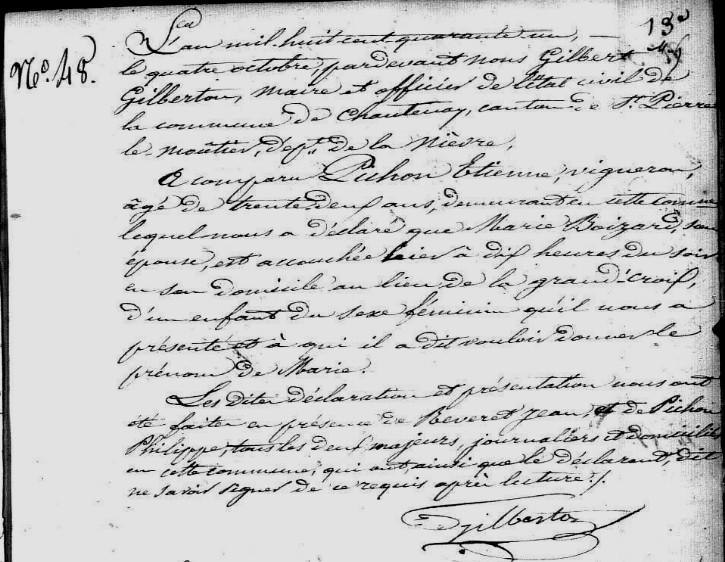 No. 48.
L'an mil-huit cent quarante un,
le quatre octobre, pardevant nous Gilbert
Gilberton, maire et officier de l'état civil de
la commune de Chantenay, canton de St. Pierre
le-moûtier, dépt. de la Nièvre,
A comparu Pichon Etienne, vigneron,
âgé de trente deux ans, demeurant en cette comm
lequel nous a déclaré que Marie Boizard, son
épouse, est accouchée hier à dix heures du soir
en son domicile au lieu de la grand'-croix,
d'un enfant du sexe féminin qu'il nous a
présenté et à qui il a dit vouloir donner le
prénom de Marie.
Les dites déclaration et présentation nous ont
été faites en présence de Reveret Jean, et de Pichon
Philippe, tous les deux majeurs, journaliers et domiciliés
en cette commune, qui ont ainsi que le déclarant, dit
ne savoir signer de ce requis après lecture./.
Gilberton